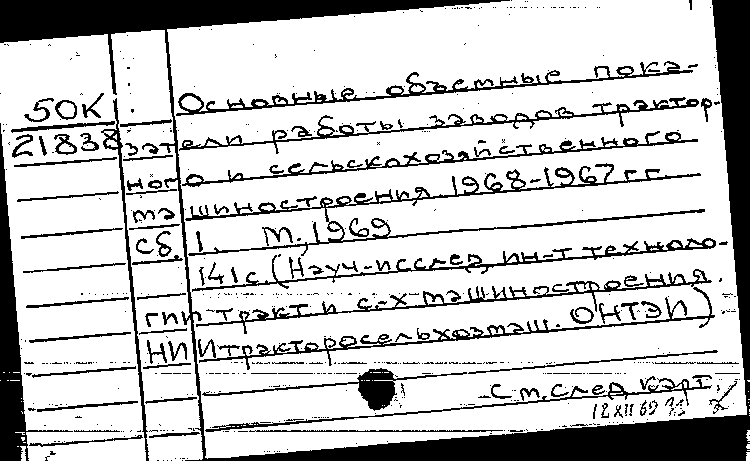 50К Основные объемные пока-
21838 затели работы заводов трактор-
ного и сельскохозяйственного
машиностроения 1968-1967 гг.
Сб. 1. М., 1969
141 с. (Науч-исслед. ин-т техноло-
гии тракт и с.-х машиностроения.
НИИтракторосельхозмаш. ОНТЭИ)
См. след. карт.
12 XII 69